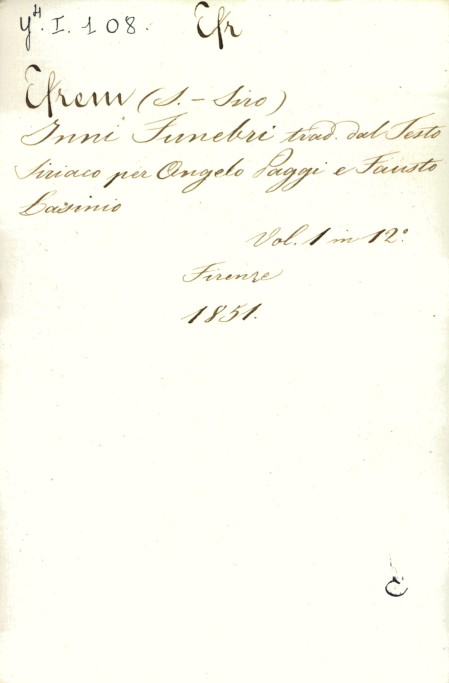 y⁴. I. 108. Efr
Efrem (S. - Siro)
Inni Funebri trad. dal Testo
Siriaco per Angelo Paggi e Fausto
Lasinio
Vol. 1 in 12°
Firenze
1851.